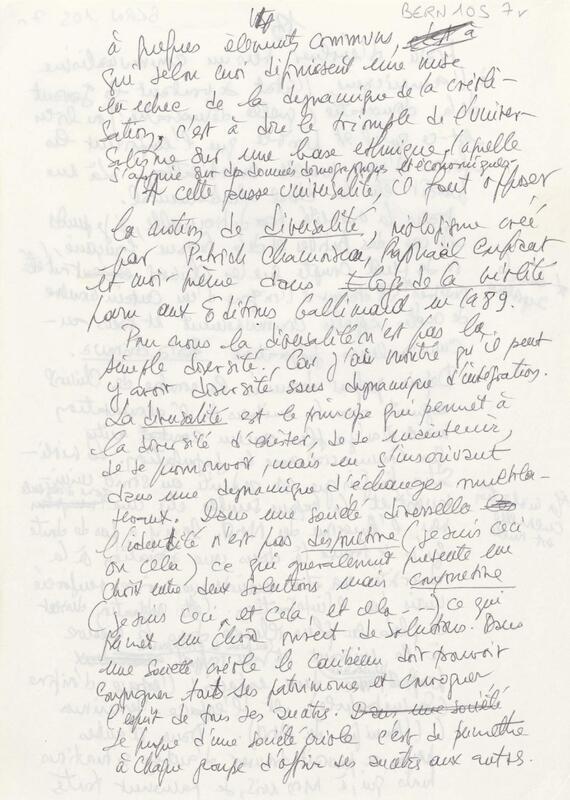 14
BERN 10S 7v
à quelques éléments communs, est à
qui selon moi définissent une mise
en échec de la dynamique de la créoli-
sation, c'est à dire le triomphe de l'univer-
salisme sur une base ethnique laquelle
s'appuie sur des données démographiques et économiques.
A cette fausse universalité, il faut opposer
la notion de diversalité, néologisme créé
par Patrick Chamoiseau, Raphaël Confiant
et moi-même dans Eloge de la créolité
paru aux Editions Gallimard en 1989.
Pour nous la diversalité n'est pas la
simple diversité. Car j'ai montré qu'il peut
y avoir diversité sans dynamique d'intégration.
La diversalité est le principe qui permet à
la diversité d'exister, de se maintenir,
de se promouvoir, mais en s'inscrivant
dans une dynamique d'échanges multila-
téraux. Dans une société diverselle
l'identité n'est pas disjonctive (je suis ceci
ou cela) ce qui généralement présente un
choix entre deux solutions mais conjonctive
(je suis ceci, et cela, et cela ---) ce qui
permet un choix ouvert de solutions. Dans
une société créole le caribéen doit pouvoir
conjuguer tous ses patrimoines et convoquer
l'esprit de tous ses ancêtres. Dans une société
Le propre d'une société créole c'est de permettre
à chaque groupe d'offrir ses ancêtres aux autres.